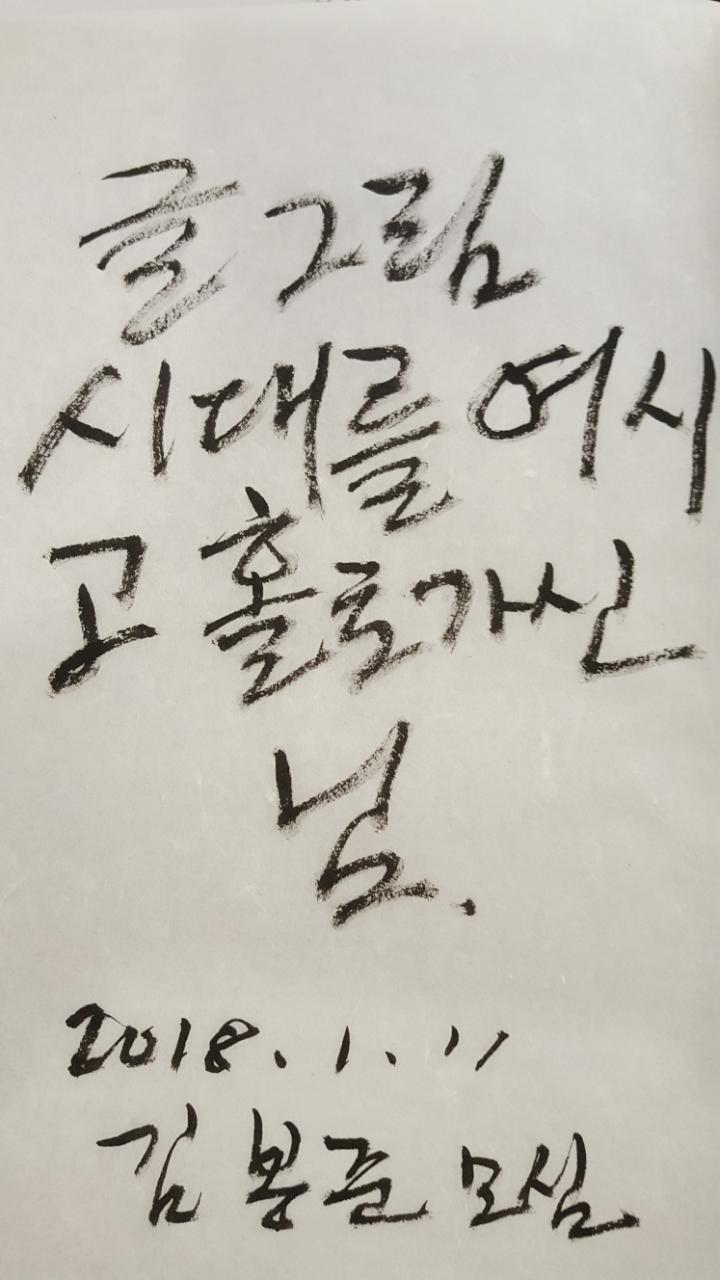 글그림
시대를 여시
고 홀로가신
님.
2018. 1. 11
김봉준 모심